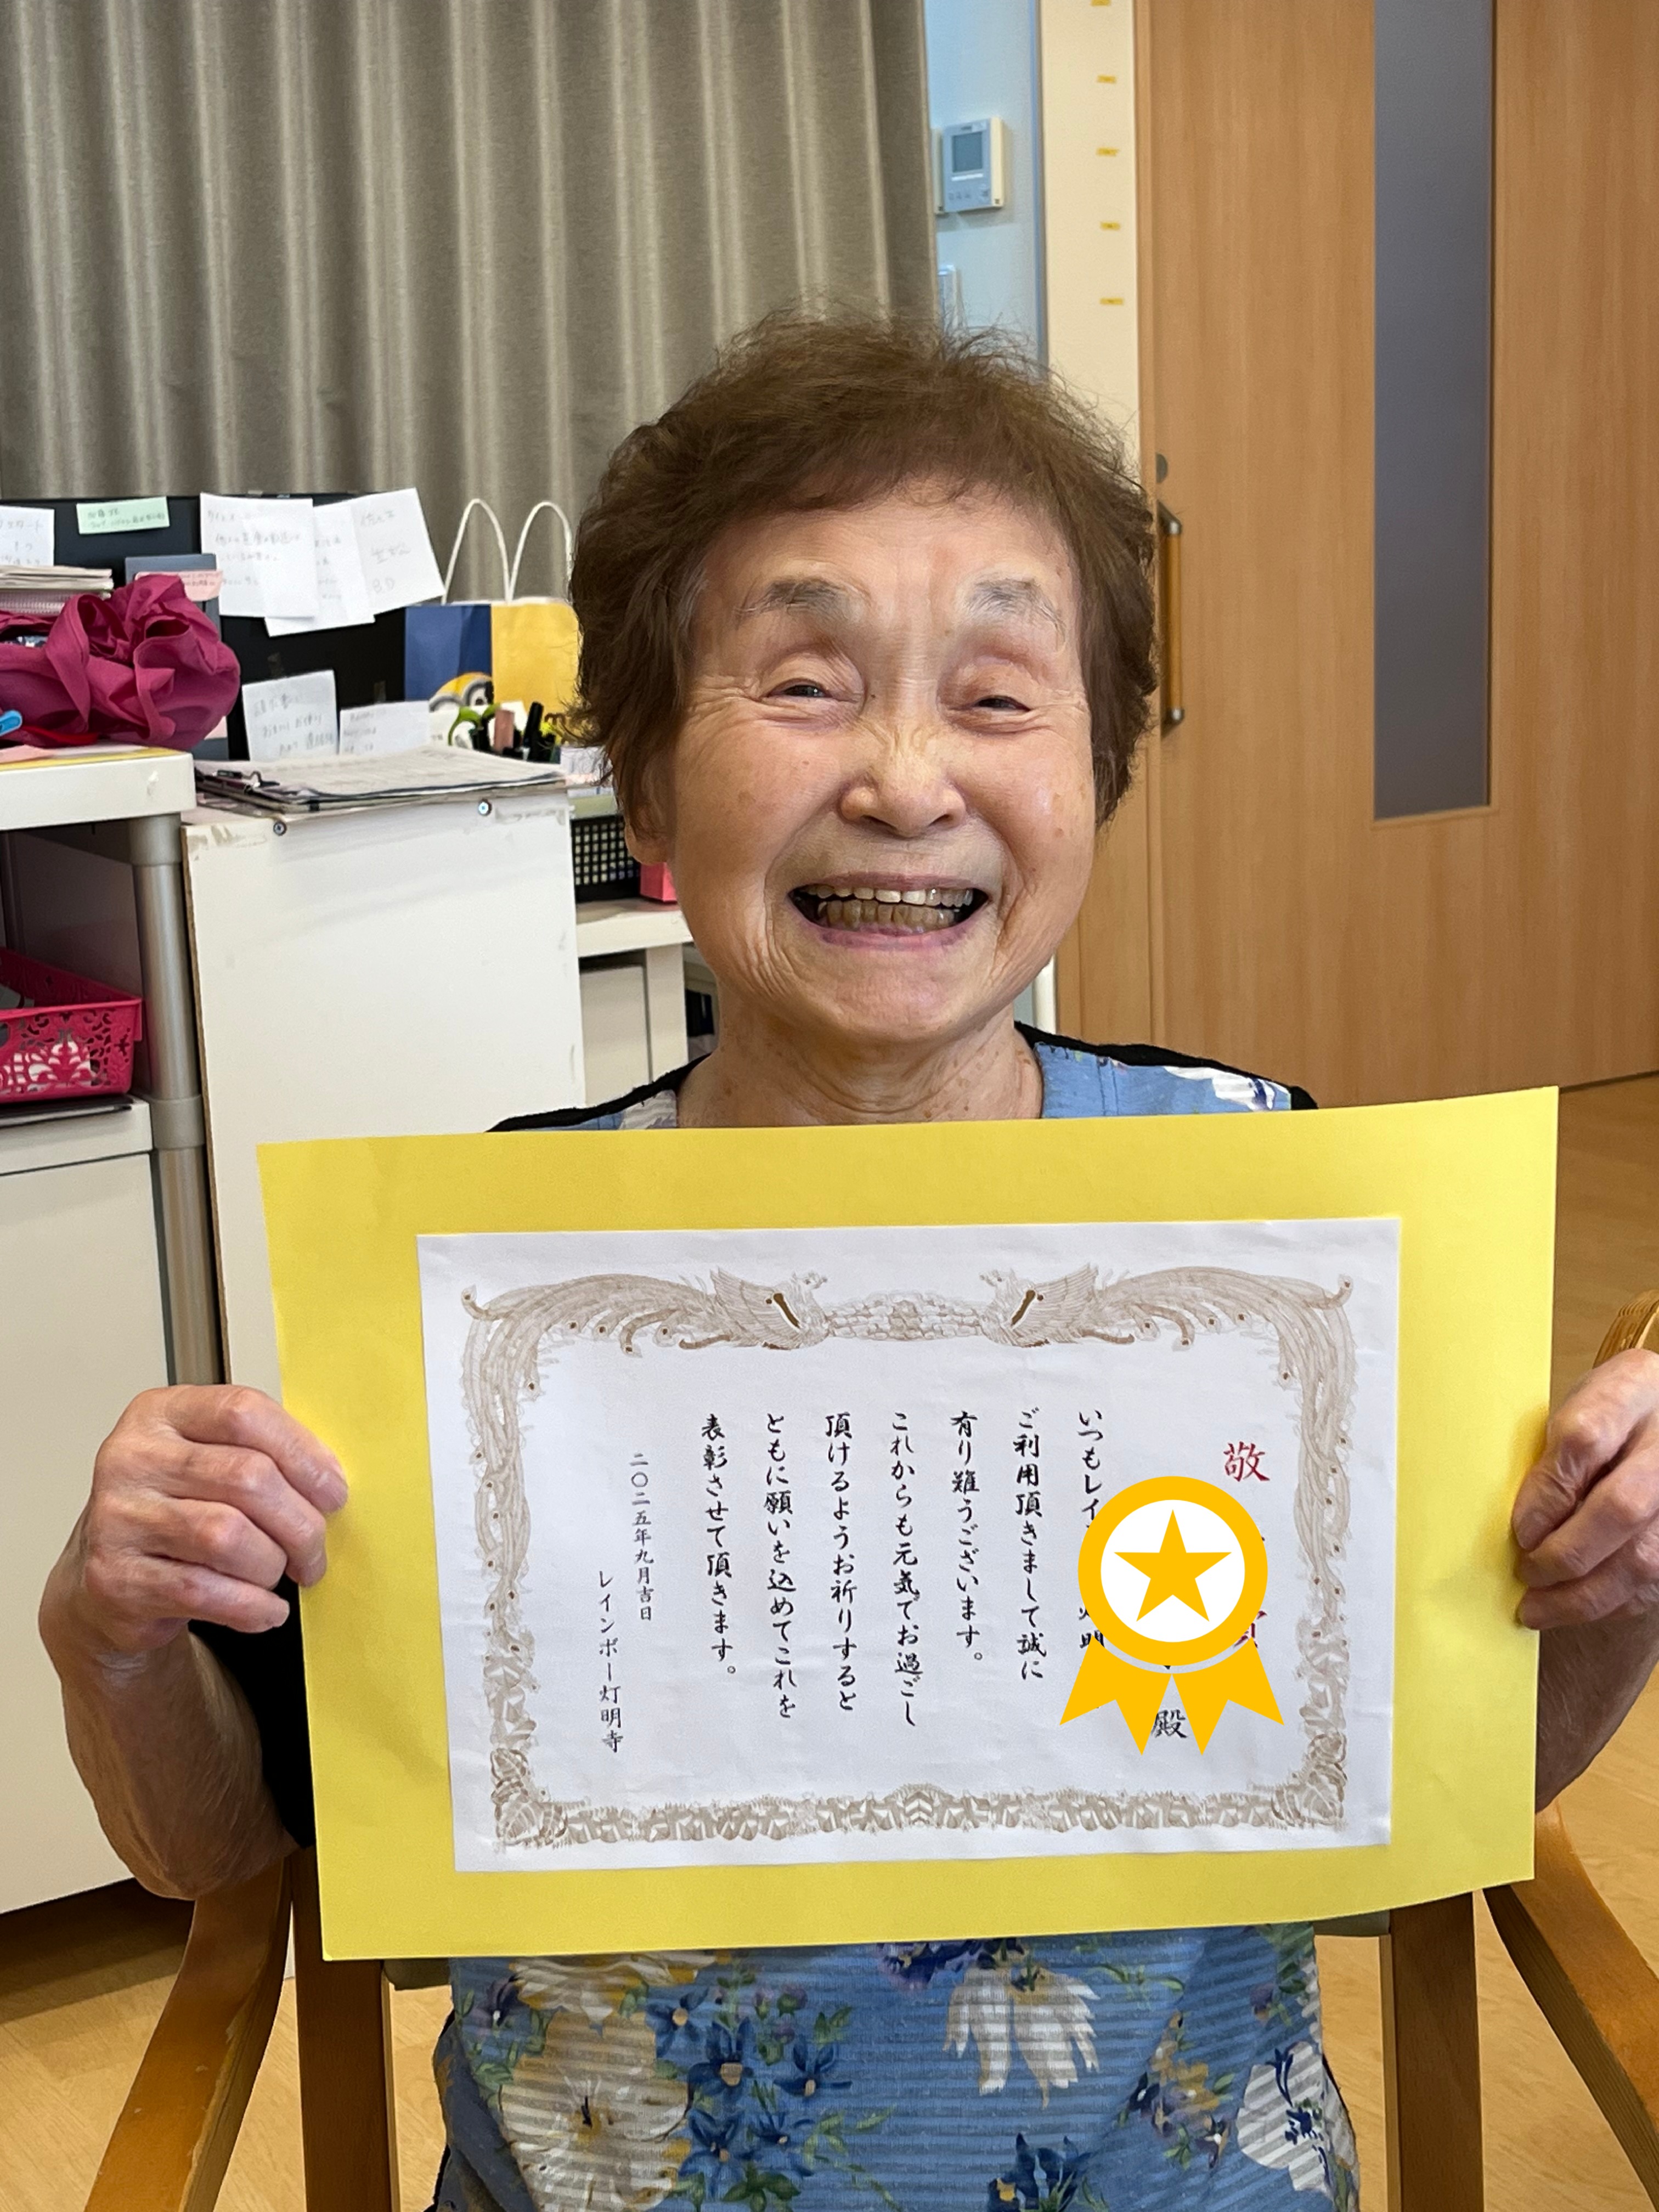 敬
殿
いつもレイ
ご利用頂きまして誠に
有り難うございます。
これからも元気でお過ごし
頂けるようお祈りすると
ともに願いを込めてこれを
表彰させて頂きます。
二〇二五年九月吉日
レインボー灯明寺